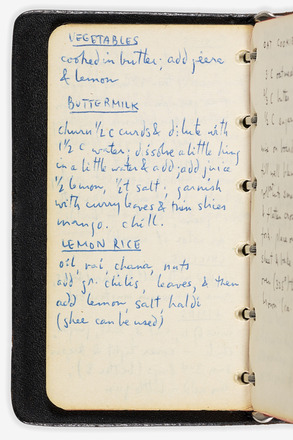 VEGETABLES
cooked in butter; add jeera
& lemon
BUTTERMILK
churn ½ c curds & dilute with
1½ c water; dissolve a little hing
in a little water & add; add juice
½ lemon, ½t salt; garnish
with curry leaves & thin slices
mango. chill.
LEMON RICE
oil, rai, chana, nuts
add gr. chilis, leaves, & then
add lemon, salt, haldi
(ghee can be used)